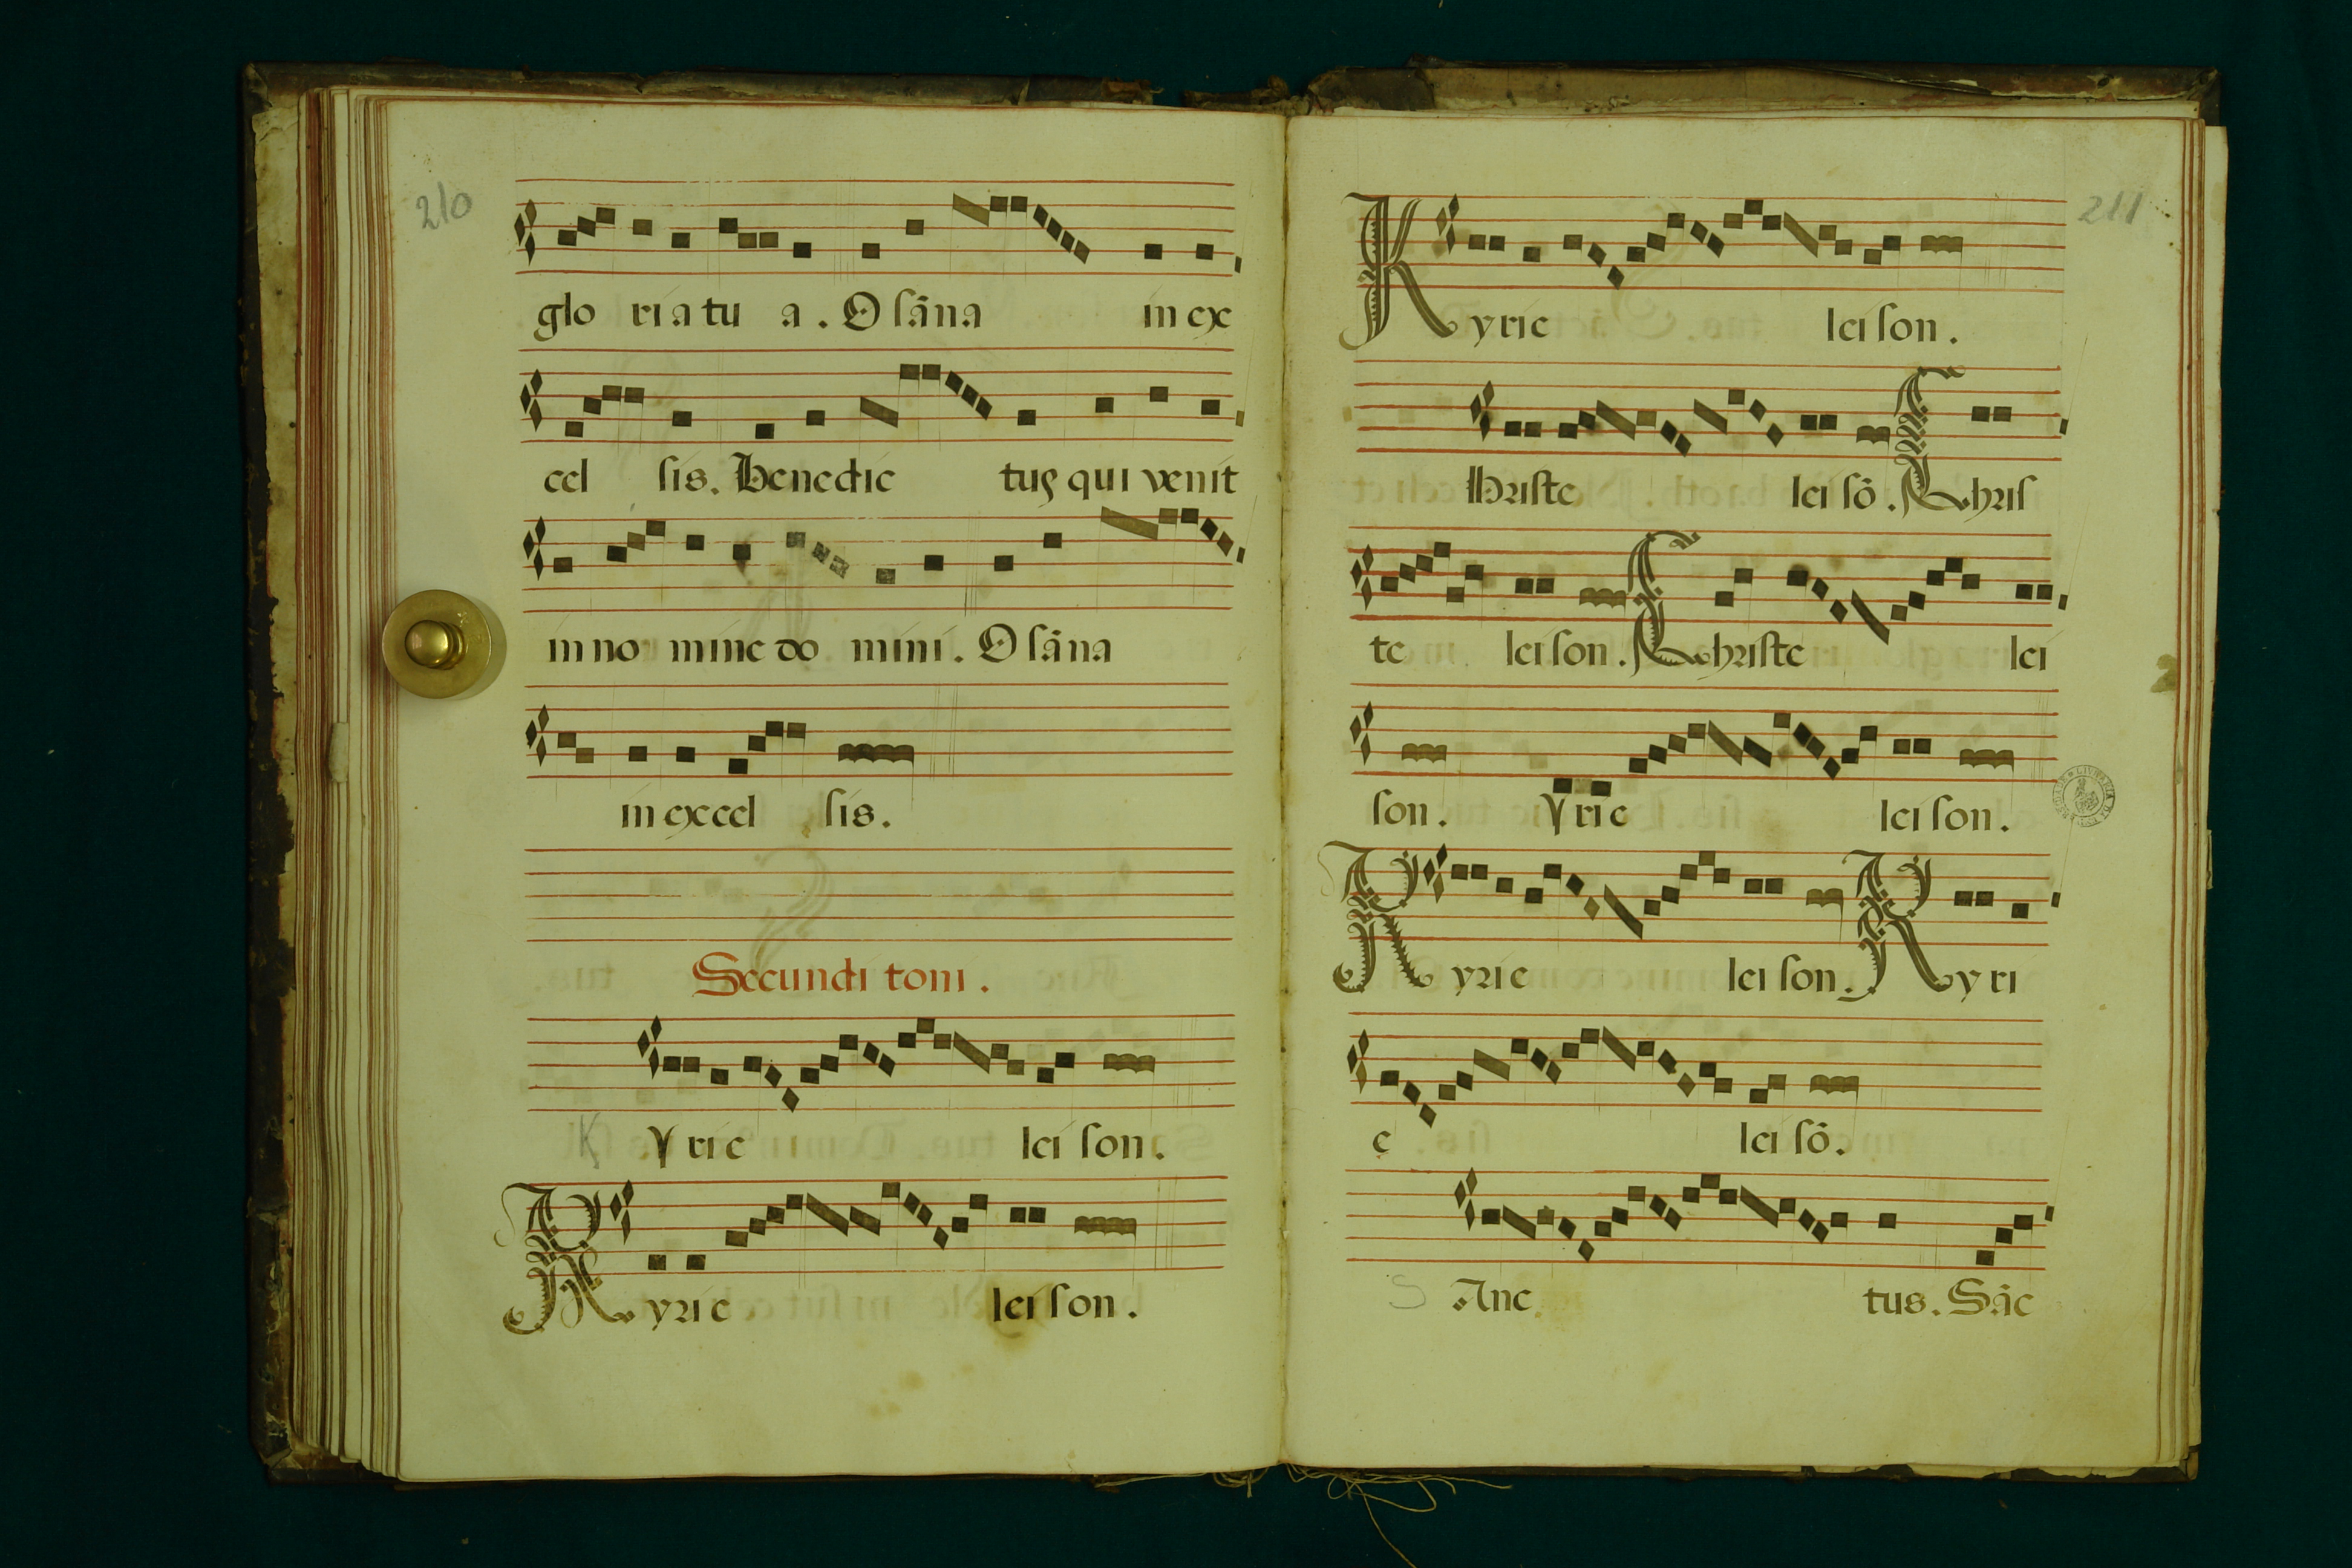 210
glo ria tu a. O sãna in ex
cel sis. Benedic tus qui venit
in no mine do mini. O sãna
in excel sis.
Secundi toni.
K yrie lei son.
Kyrie lei son.
211
Kyrie lei son.
hriste lei sõ. Chris
te lei son. Christe lei
son. yrie lei son.
Kyrie lei son. Kyri
e lei sõ.
S Anc tus. Sãc